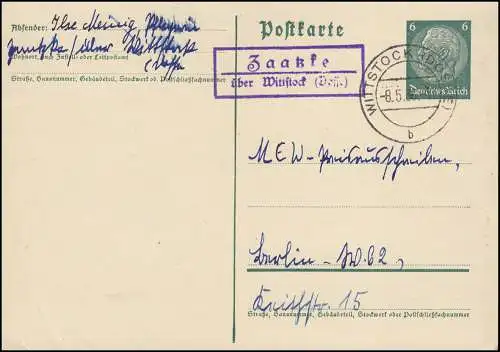 Absender: Ilse Meinig
Zaatzke / über Wittstock
Wohnort, auch Zustell- oder Leitpostamt
Straße, Hausnummer, Gebäudeteil, Stockwerk od. Postschließfachnummer
Postkarte
6 6
Deutsches Reich
Zaatzke
über Wittstock (Dosse)
WITTSTOCK (DOSSE)
-8.5.
b
MEW-Preisausschreiben,
Berlin-W.62,
Keithstr. 15
Straße, Hausnummer, Gebäudeteil, Stockwerk oder Postschließfachnummer